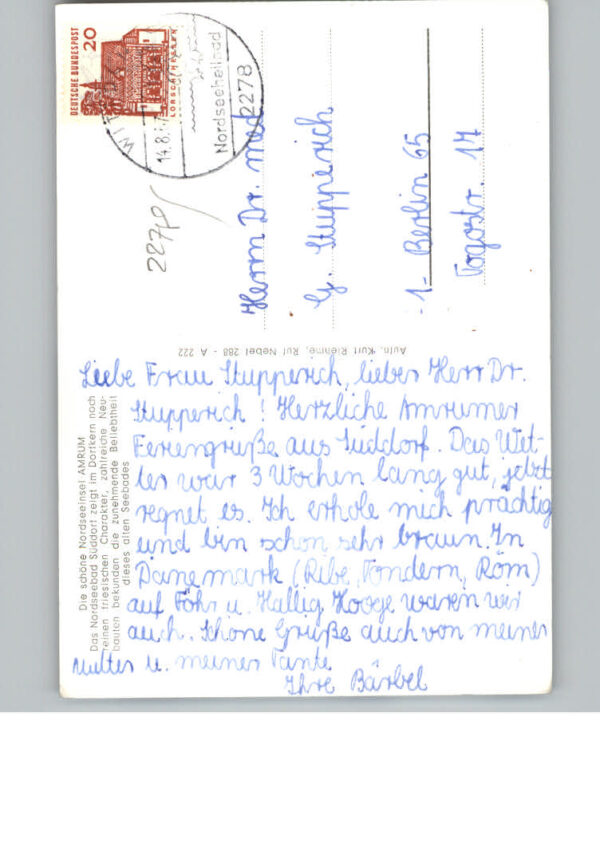 DEUTSCHE BUNDESPOST
20
LORSCH/HESSEN
14.8.
Nordseeheilbad
2278
2270
Herrn Dr. med
G. Stupperich
1- Berlin 65
Togostr. 17
Aufn. Kurt Riehme, Ruf Nebel 288 - A 222
Die schöne Nordseeinsel AMRUM
Das Nordseebad Süddorf zeigt im Dorfkern noch
reinen friesischen Charakter, zahlreiche Neu-
bauten bekunden die zunehmende Beliebtheit
dieses alten Seebades
Liebe Frau Stupperich, lieber Herr Dr.
Stupperich! Herzliche Amrumer
Feriengrüße aus Süddorf. Das Wet-
ter war 3 Wochen lang gut, jetzt
regnet es. Ich erhole mich prächtig
und bin schon sehr braun. In
Dänemark (Ribe, Tondern, Röm)
auf Föhr u. Hallig Hooge waren wir
auch. Schöne Grüße auch von meiner
Mutter u. meiner Tante
Ihre Bärbel